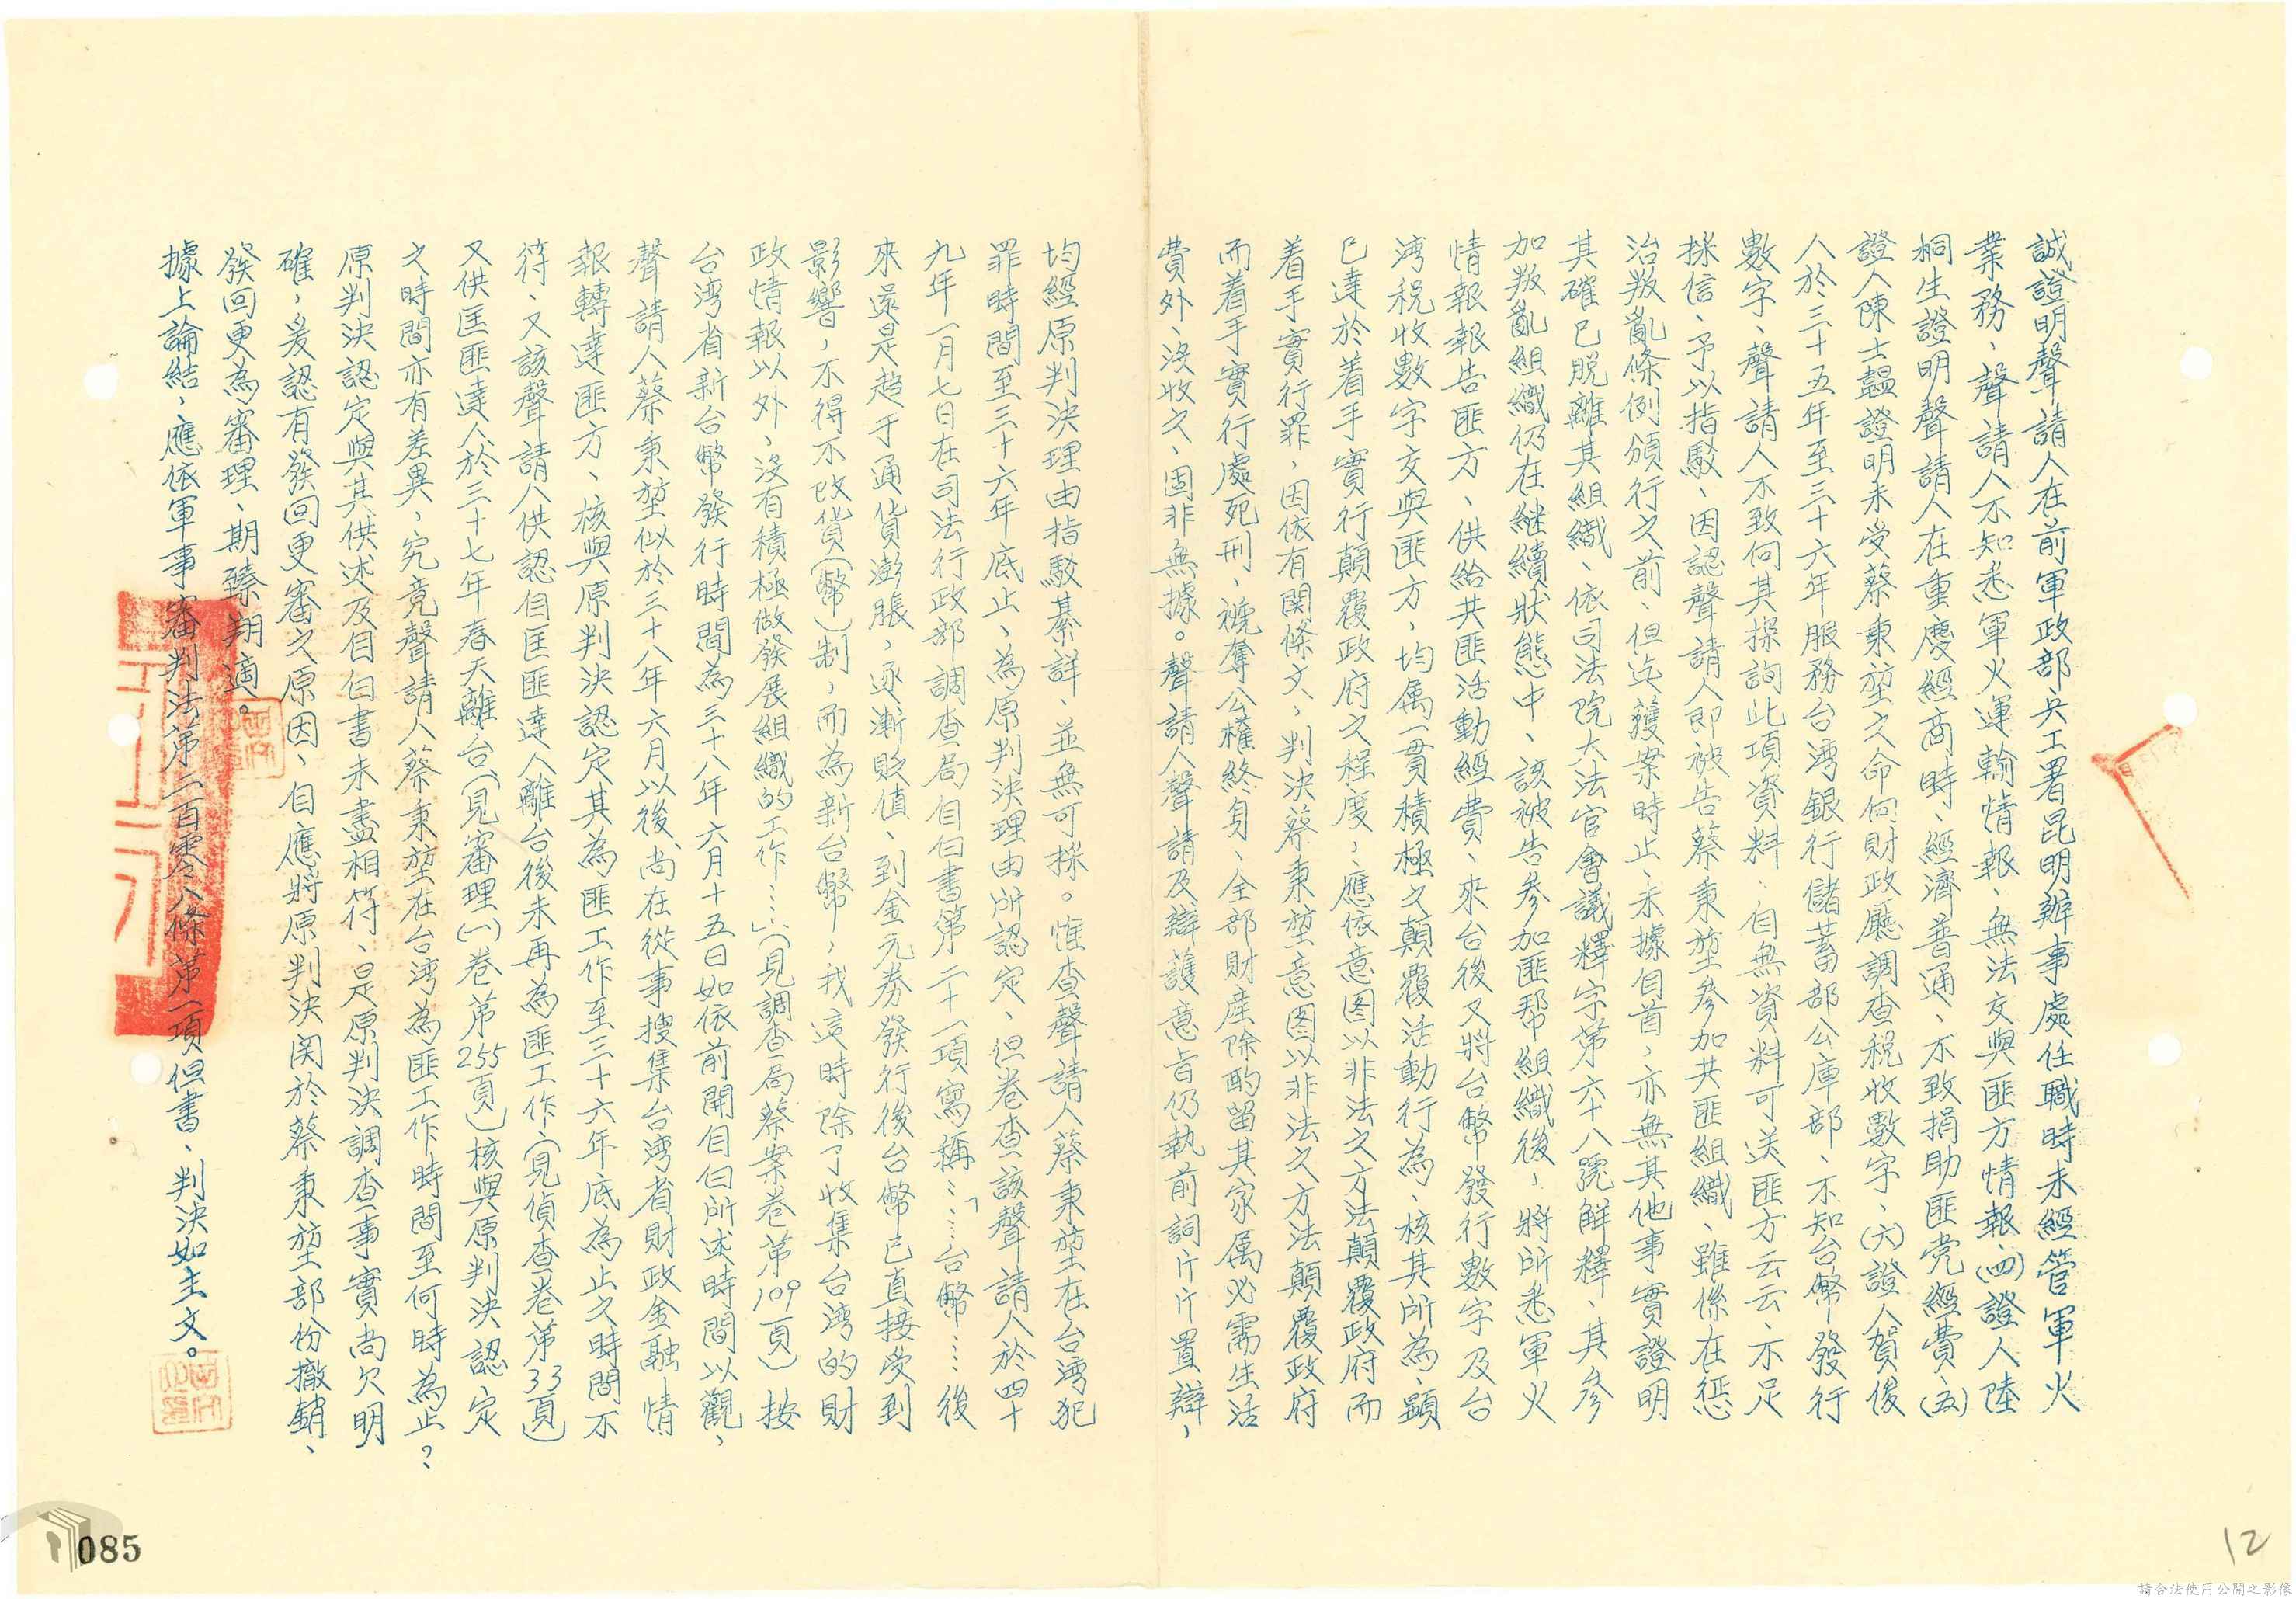 誠證明聲請人在前軍政部兵工署昆明辦事處任職時未經管軍火
業務、聲請人不知悉軍火運輸情報、無法交與匪方情報、(四)證人陸
桐生證明聲請人在重慶經商時、經濟普通、不致捐助匪党經費、(五)
證人陳士韞證明未受蔡秉堃之命向財政廳調查税收數字、(六)證人賀俊
人於三十五年至三十六年服務台湾銀行儲蓄部公庫部、不知台幣發行
數字、聲請人不致向其探詢此項資料、自無資料可送匪方云云、不足
採信、予以指駁、因認聲請人即被告蔡秉堃參加共匪組織、雖係在惩
治叛亂條例頒行之前、但迄獲案時止、未據自首，亦無其他事實證明
其確已脱離其組織、依司法院大法官會議釋字第六十八號解釋、其參
加叛亂組織仍在継續狀態中、該被告參加匪帮組織後，將所悉軍火
情報報告匪方、供給共匪活動經費、來台後又將台幣發行數字及台
湾税收數字交與匪方，均属一貫積極之顛覆活動行為、核其所為、顕
已達於着手實行顛覆政府之程度，應依意图以非法之方法顛覆政府而
着手實行罪，因依有関條文、判決蔡秉堃意图以非法之方法顛覆政府
而着手實行處死刑、褫奪公權終身、全部財産除酌留其家属必需生活
費外、沒收之、固非無據。聲請人聲請及辯護意旨仍執前詞斤斤置辯，
均經原判決理由指駁綦詳、並無可採。惟查聲請人蔡秉堃在台湾犯
罪時間至三十六年底止、為原判決理由所認定、但卷查該聲請人於四十
九年一月七日在司法行政部調查局自白書第二十一項寫稱：「……台幣……後
來還是趋于通貨澎脹，逐漸貶值、到金元券發行後台幣已直接受到
影響，不得不改貨(幣)制，而為新台幣，我這時除了收集台湾的財
政情報以外、沒有積極做發展組織的工作……」(見調查局蔡案卷第109頁)按
台湾省新台幣發行時間為三十八年六月十五日如依前開自白所述時間以觀、
聲請人蔡秉堃似於三十八年六月以後、尚在從事搜集台湾省財政金融情
報轉達匪方、核與原判決認定其為匪工作至三十六年底為止之時間不
符、又該聲請人供認自匡匪達人離台後未再為匪工作、(見偵查卷第33頁)
又供匡匪達人於三十七年春天離台(見審理(一)卷第255頁)核與原判決認定
之時間亦有差異，究竟聲請人蔡秉堃在台湾為匪工作時間至何時為止？
原判決認定與其供述及自白書未盡相符、是原判決調查事實尚欠明
確，爰認有發回更審之原因、自應將原判決関於蔡秉堃部份撤銷、
發回更為審理、期臻翔適。
據上論結，應依軍事審判法第二百零八條第一項但書、判決如主文。
085
12
請合法使用公開之影像